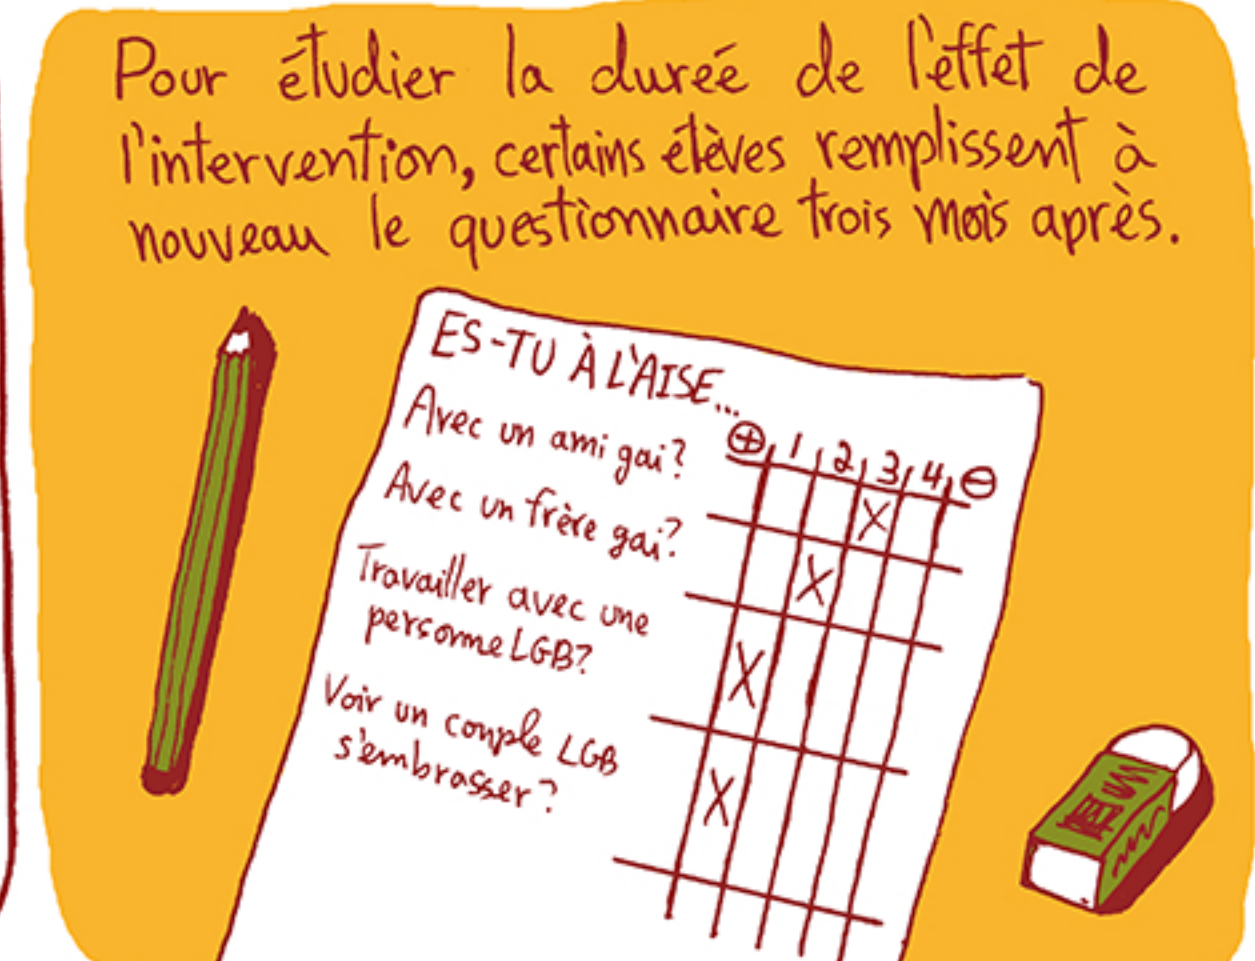 Pour étudier la dureé de l'effet de
l'intervention, certains élèves remplissent à
nouveau le questionnaire trois mois après.
ES-TU À L'AISE...
⊕ 1 2 3 4 ⊖
Avec un ami gai?
X
Avec un frère gai?
X
Travailler avec une
personne LGB?
X
Voir un couple LGB
s'embrasser?
X